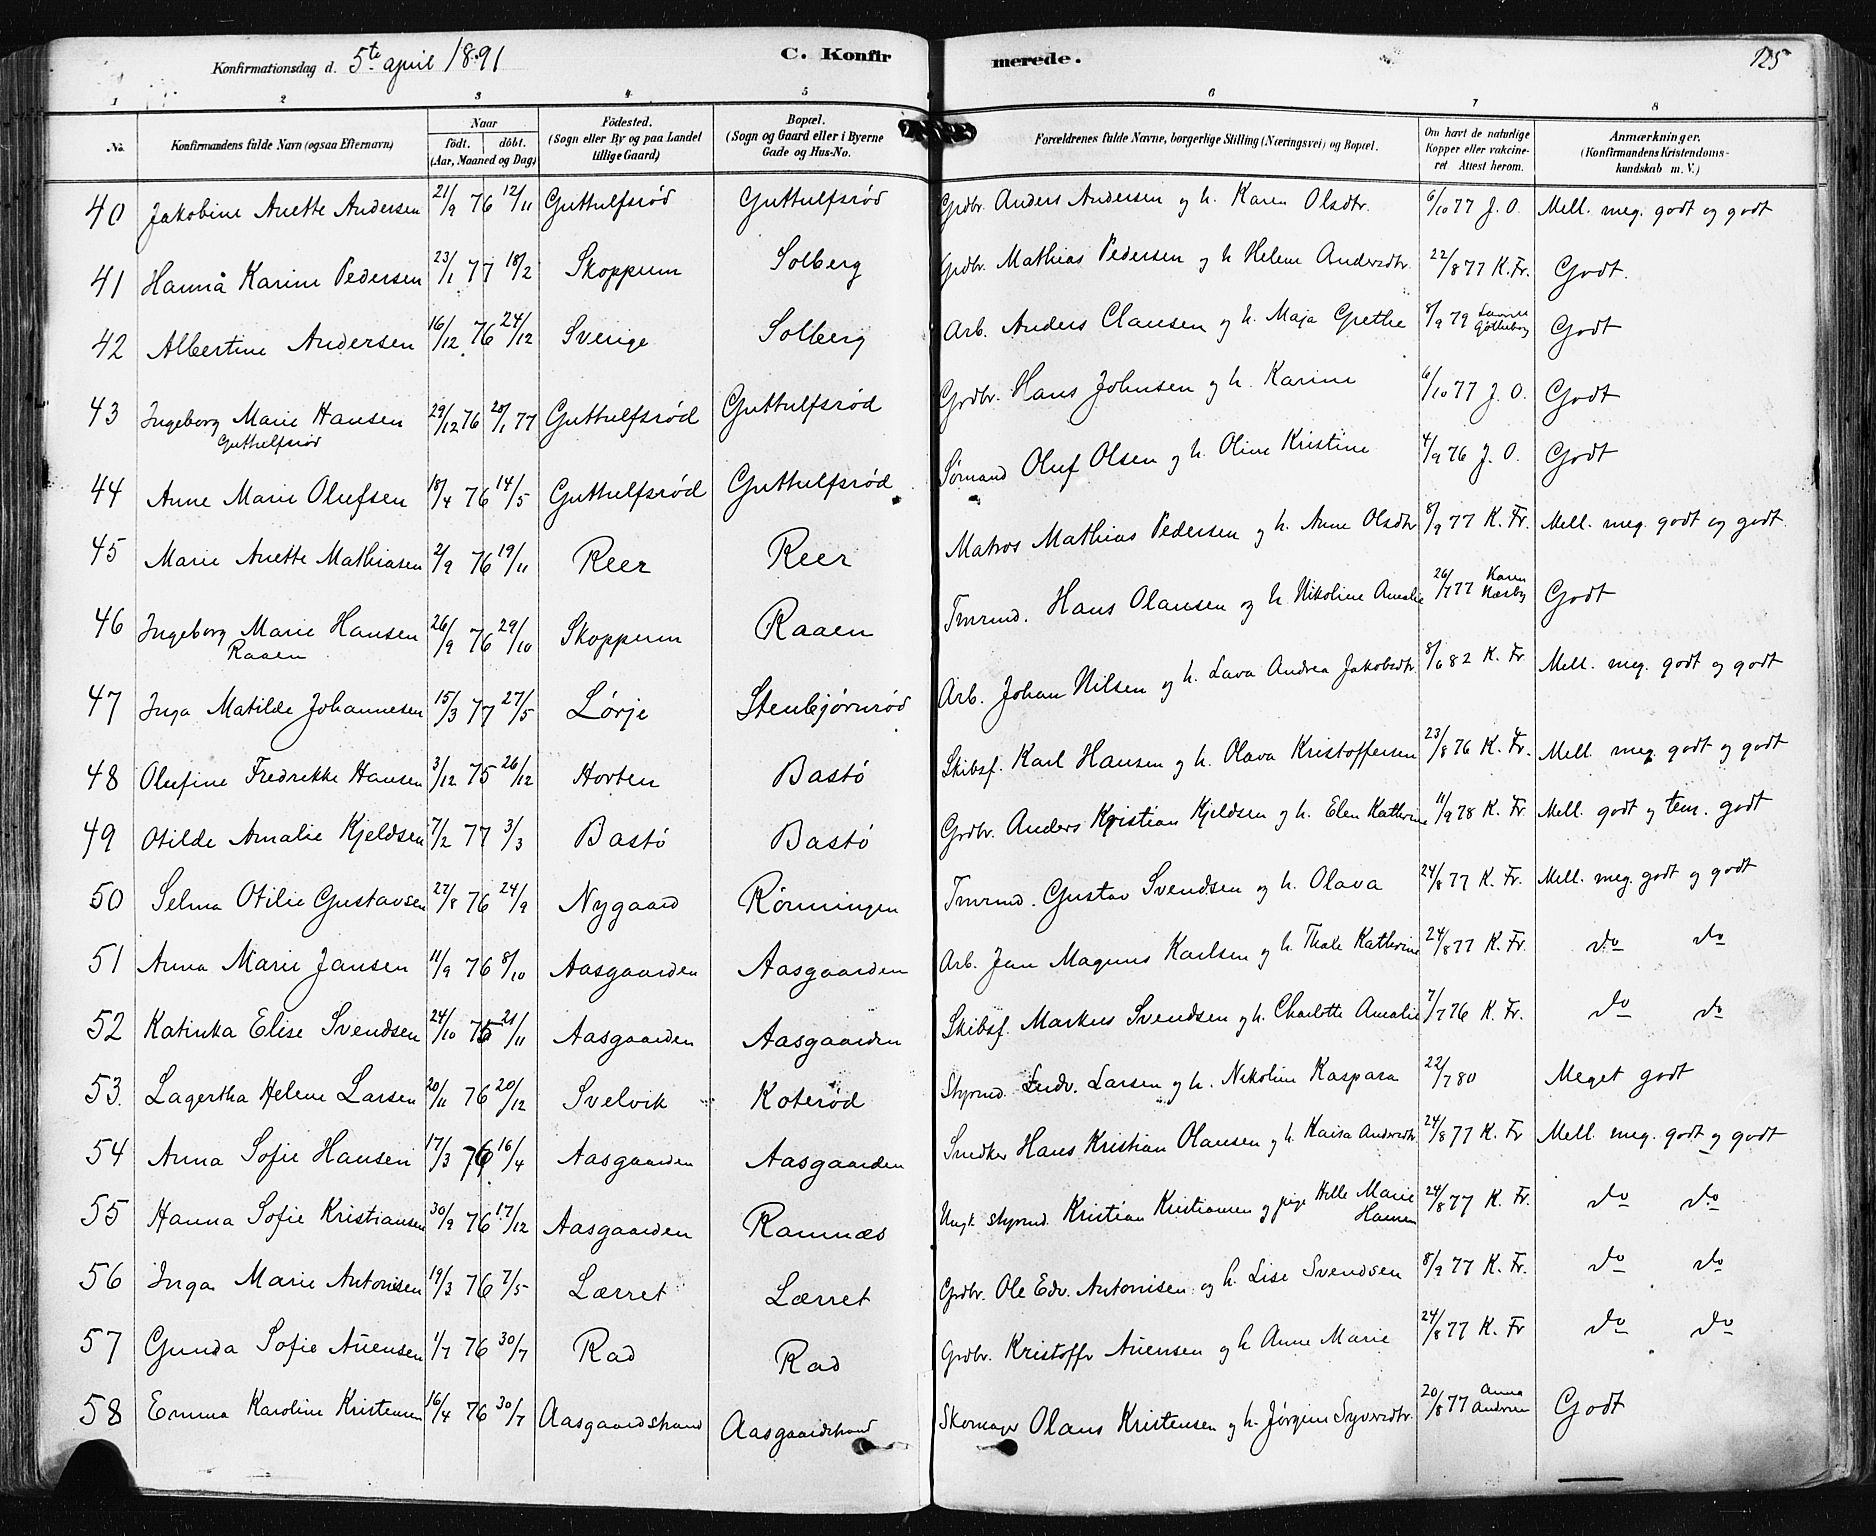 Konfirmationsdag d. 5te april 1891 C. Konfir merede. 125
1 2 3 4 5 6 7 8
No. Konfirmandens fulde Navn (ogsaa Efternavn) Naar født. døbt. (Aar, Maaned og Dag) Fødested. (Sogn eller By og paa Landet tillige Gaard) Bopæl. (Sogn og Gaard eller i Byerne Gade og Hus-No. Forældrenes fulde Navne, borgerlige Stilling (Næringsvei) og Bopæl. Om havt de naturlige Kopper eller vakcineret Attest herom. Anmærkninger. (Konfirmandens Kristendomskundskab m. V.)
40 Jakobine Anette Andersen 21/9 76 12/11 Guttulfsrød Guttulfsrød Grdbr. Anders Andersen og h. Karen Olsdtr. 6/10 77 J. O. Mell. meg. godt og godt
41 Hanna Karine Pedersen 23/1 77 18/2 Skoppum Solberg Grdbr. Mathias Pedersen og h Helene Andersdtr. 22/8 77 K. Fr. Godt.
42 Albertine Andersen 16/12 76 24/12 Sverige Solberg Arb. Anders Clausen og h. Maja Grethe 8/9 79 Gøtheborg Godt
43 Ingeborg Marie Hansen Guttulfsrød 29/12 76 28/1 77 Guttulfsrød Guttulfsrød Grdbr. Hans Johnsen og h. Karine 6/10 77 J. O. Godt
44 Anne Marie Olufsen 18/4 76 14/5 Guttulfsrød Guttulfsrød Sømand Oluf Olsen og h. Oline Kristine 4/9 76 J. O. Godt
45 Marie Anette Mathiasen 2/9 76 19/11 Reer Reer Matros Mathias Pedersen og h. Anne Olsdtr 8/9 77 K. Fr. Mell. meg. godt og godt
46 Ingeborg Marie Hansen Raaen 26/9 76 29/10 Skoppum Raaen Tmrmd. Hans Olausen og h. Nikoline Amalie 26/7 77 Karen Næsby Godt
47 Inga Matilde Johannesen 15/3 77 27/5 Lørje Stenbjørnrød Arb. Johan Nilsen og h. Lava Andrea Jakobsdtr. 8/6 82 K. Fr Mell. meg. godt og godt
48 Olufine Fredrikke Hansen 3/12 75 26/12 Horten Bastø Skibsf. Karl Hansen og h. Olava Kristoffersen 23/8 76 K. Fr. Mell. meg. godt og godt
49 Otilde Amalie Kjeldsen 7/2 77 3/3 Bastø Bastø Grdbr. Anders Kristian Kjeldsen og h. Elen Kathrine 11/9 78 K. Fr Mell. godt og tem. godt
50 Selma Otilie Gustavsen 27/8 76 24/9 Nygaard Rønningen Tmrmd. Gustav Svendsen og h. Olava 24/8 77 K. Fr. Mell. meg. godt og godt
51 Anna Marie Jansen 11/9 76 8/10 Aasgaarden Aasgaarden Arb. Jan Magnus Karlsen og h. Thale Kathrine 24/8 77 K. Fr. do do
52 Katinka Elise Svendsen 24/10 75 21/11 Aasgaarden Aasgaarden Skibsf. Markus Svendsen og h. Charlotte Amalie 7/7 76 K. Fr. do do
53. Lagertha Helene Larsen 20/11 76 20/12 Svelvik Koterød Styrmd. Ludv. Larsen og h. Nikoline Kaspara 22/7 80 Meget godt
54 Anna Sofie Hansen 17/3 76 16/4 Aasgaarden Aasgaarden Snedker Hans Kristian Olausen og h. Kaisa Andersdtr. 24/8 77 K. Fr Mell. meg. godt og godt
55 Hanna Sofie Kristiansen 30/9 76 17/12 Aasgaarden Ramnæs Ungk. styrmd. Kristian Kristiansen og pige Helle Marie Hansen 24/8 77 K. Fr. do do
56 Inga Marie Antonisen 19/3 76 7/5 Lærret Lærret Grdbr. Ole Edv. Antonisen og h. Lise Svendsen 8/9 77 K. Fr. do do
57 Gunda Sofie Auensen 1/7 76 30/7 Rad Rad Grdbr. Kristoffr Auensen og h Anne Marie 24/8 77 K. Fr do do
58 Emma Karoline Kristensen 16/4 76 30/7 Aasgaardstrand Aasgaardstrand Skomager Olaus Kristensen og h. Jørgine Syversdtr. 20/8 77 Anna Andrea Godt